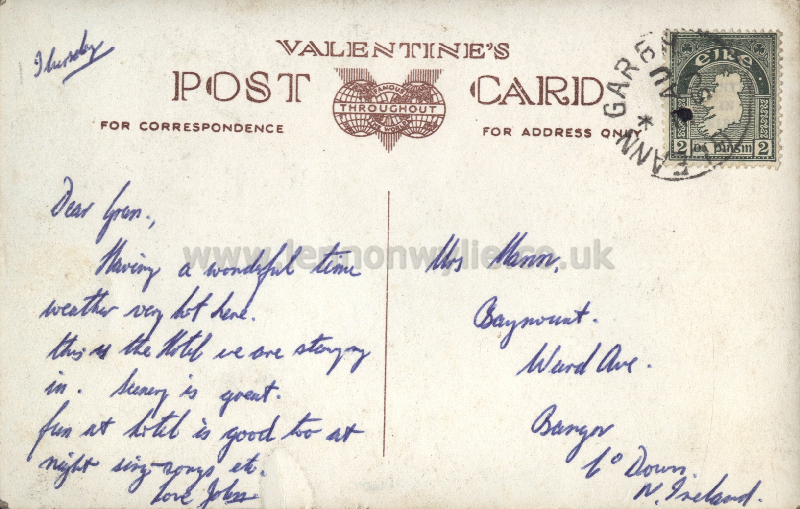 Thursday
VALENTINE'S
POST CARD
FAMOUS
THROUGHOUT
THE WORLD
FOR CORRESPONDENCE
FOR ADDRESS ONLY
EIRE
2 DA PINGIN 2
GARB
AU
EANN
Dear Gran.,
Having a wonderful time
weather very hot here.
this is the Hotel we are staying
in. Scenery is great.
fun at hotel is good too at
night sing-songs etc.
Love John
www.lennonwylie.co.uk
Mrs Mann,
Baymount.
Ward Ave.
Bangor
Co Down.
N. Ireland.